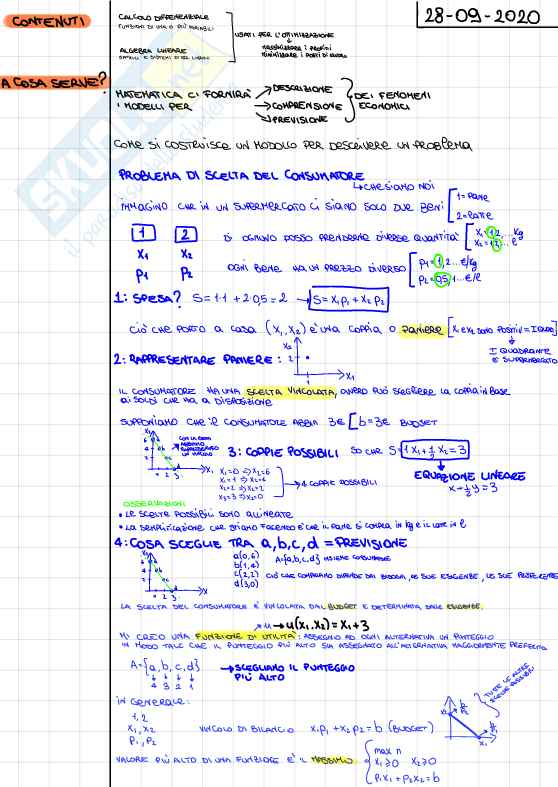 28-09-2020
CONTENUTI
CALCOLO DIFFERENZIALE
FUNZIONI DI UNA O PIÙ VARIABILI
ALGEBRA LINEARE
USATI PER L'OTTIMIZZAZIONE
massimizzare i profitti
minimizzare i
A COSA SERVE?
MATEMATICA CI FORNIRÀ
I MODELLI PER
DESCRIZIONE
COMPRENSIONE
PREVISIONE
DEI FENOMENI
ECONOMICI
COME SI COSTRUISCE UN MODELLO PER DESCRIVERE UN PROBLEMA
PROBLEMA DI SCELTA DEL CONSUMATORE
↳ CHE SIAMO NOI
IMMAGINO CHE IN UN SUPERMERCATO CI SIANO SOLO DUE BENI
1 = PANE
2 = LATTE
1 2
X₁ X₂
P₁ P₂
DI OGNUNO POSSO PRENDERNE DIVERSE QUANTITÀ
X₁ = 1,2...Kg
X₂ = 1,2...l
OGNI BENE HA UN PREZZO DIVERSO
P₁ = 1,2...€/Kg
P₂ = 0,5,1...€/l
1: SPESA? S = 1·1 + 2·0,5 = 2 → S = X₁P₁ + X₂P₂
CIÒ CHE PORTO A CASA (X₁, X₂) È UNA COPPIA O PANIERE [X₁ e X₂ sono POSITIVI =
I QUADRANTE
È SUPERMERCATO
2: RAPPRESENTARE PANIERE:
X₂
2
1
X₁
IL CONSUMATORE HA UNA SCELTA VINCOLATA, OVVERO PUÒ SCEGLIERE LA COPPIA IN BASE
AI SOLDI CHE HA A DISPOSIZIONE
SUPPONIAMO CHE IL CONSUMATORE ABBIA 3€ [b = 3€ BUDGET
3: COPPIE POSSIBILI SO CHE S = 1X₁ + ½X₂ = 3
X₁=0 ⇒ X₂=6
X₁=1 ⇒ X₂=4
X₁=2 ⇒ X₂=2
X₁=3 ⇒ X₂=0
→ 4 COPPIE POSSIBILI
EQUAZIONE LINEARE
x + ½y = 3
OSSERVAZIONI
• LE SCELTE POSSIBILI SONO ALLINEATE
• LA SEMPLIFICAZIONE CHE STIAMO FACENDO È CHE IL PANE SI COMPRA IN Kg E IL LATTE IN l
4: COSA SCEGLIE TRA a, b, c, d = PREVISIONE
a(0,6)
b(1,4)
c(2,2)
d(3,0)
A={a,b,c,d} INSIEME CONSUMATORE
CIÒ CHE COMPRIAMO DIPENDE DAI BISOGNI, LE SUE ESIGENZE, LE SUE PREFERENZE
LA SCELTA DEL CONSUMATORE È VINCOLATA DAL BUDGET E DETERMINATA DALLE ESIGENZE.
u → u(X₁,X₂) = X₁+3
MI CREO UNA FUNZIONE DI UTILITÀ: ASSEGNO AD OGNI ALTERNATIVA UN PUNTEGGIO
IN MODO TALE CHE IL PUNTEGGIO PIÙ ALTO SIA ASSEGNATO ALL'ALTERNATIVA MAGGIORMENTE PREFERITA
A={a,b,c,d}
4 3 2 1
→ SCEGLIAMO IL PUNTEGGIO
PIÙ ALTO
IN GENERALE:
1,2
X₁, X₂
P₁, P₂
VINCOLO DI BILANCIO X₁P₁ + X₂P₂ = b (BUDGET)
TUTTE LE ALTRE
SCELTE POSSIBILI
VALORE PIÙ ALTO DI UNA FUNZIONE È IL MASSIMO
max u
X₁≥0 X₂≥0
P₁X₁+P₂X₂=b